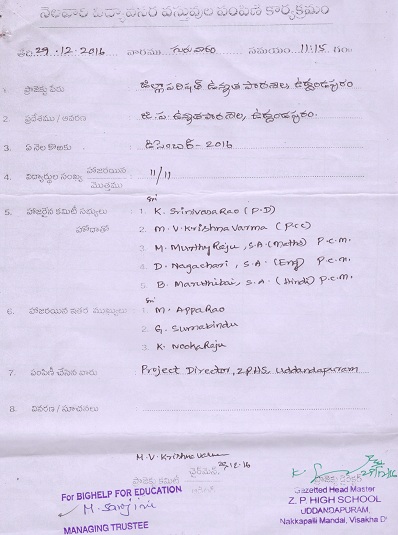 నెలవారి విద్యావసర వస్తువుల పంపిణి కార్యక్రమం
తేది 29.12.2016 వారము గురువారం సమయం 11:15 గం
1. ప్రాజెక్టు పేరు : జిల్లా పరిషత్ ఉన్నత పాఠశాల, ఉద్దండపురం
2. ప్రదేశము / ఆవరణ : జి.ప. ఉన్నత పాఠశాల, ఉద్దండపురం.
3. ఏ నెల కొఱకు : డిసెంబర్ - 2016
4. విద్యార్థుల సంఖ్య హాజరయిన : 11/11
మొత్తము
5. హాజరైన కమిటీ సభ్యులు : Sri 1. K. Srinivasa Rao (P.D)
హోదాతో 2. M. V. Krishna Varma (Pcc)
3. M. Murthy Raju, S.A (Maths) P.c.m.
4. D. Nagachari, S.A. (Eng) P.c.m.
5. B. Maruthibai, S.A. (Hindi) P.c.m.
6. హాజరయిన ఇతర ముఖ్యులు : Sri 1. M. Appa Rao
2. G. Surnabindu
3. K. Nooka Raju
7. పంపిణీ చేసిన వారు : Project Director, Z.P.H.S. Uddandapuram
8. వివరణ / సూచనలు :
M. V. Krishna Varma
29.12.16
ఛైర్మన్
ప్రాజెక్టు కమిటీ
ప్రాజెక్టు డైరెక్టర్
29-12-16
For BIGHELP FOR EDUCATION
M. Sarojini
MANAGING TRUSTEE
Gazetted Head Master
Z. P. HIGH SCHOOL
UDDANDAPURAM,
Nakkapalli Mandal, Visakha D